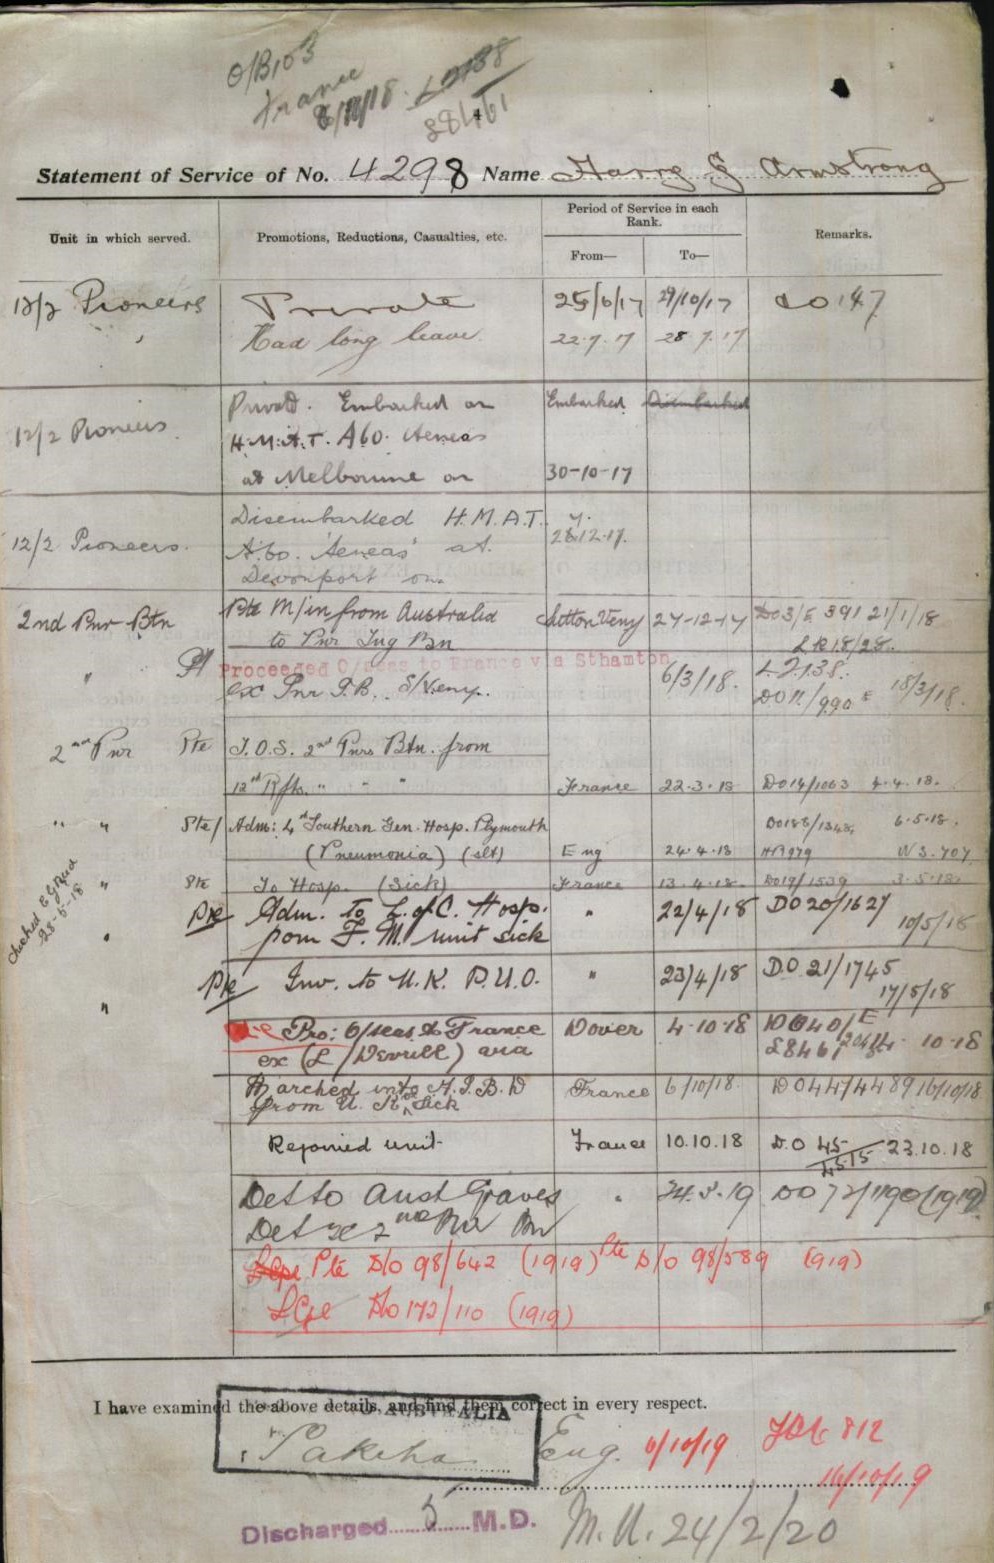 O/B103
France
L2138
8/11/18
£8461
Statement of Service of No. 4298 Name Harry G Armstrong
Unit in which served.
Promotions, Reductions, Casualties, etc.
Period of Service in each Rank.
From—
To—
Remarks.
12/2 Pioneers Private 25/6/17 29/10/17 147
Had long leave. 22.7.17 28.7.17
12/2 Pioneers Private. Embarked on Embarked Disembarked
H.M.A.T. A60. Aeneas
at Melbourne on 30-10-17
12/2 Pioneers. Disembarked H.M.A.T.
A60. 'Aeneas' at 12.17.
Devonport on
2nd Pnr Btn Pte M/in from Australia Sutton Veny 27-12-17 DO3/E 391 21/1/18
to Pnr Trg Bn
" Proceeded O/Seas to France via Sthamton 6/3/18. L.2138.
ex Pnr T.B. S/Veny. DO11/990 E 18/3/18.
2nd Pnr Pte T.O.S. 2nd Pnrs Btn. from
12th Rfts. " " " France 22.3.18 DO14/1063 4.4.18.
" " Pte/ Adm: 4th Southern Gen. Hosp. Plymouth 6.5.18.
(Pneumonia) (slt) Eng 24.4.18 W3.707
" Pte To Hosp. (Sick) France 13.4.18. DO19/1539 3.5.18.
Pte Adm. to L. of C. Hosp. " 22/4/18 DO20/1627
" from F. M. unit sick 10/5/18
Checked E G Reid
28-5-18
" Pte Inv. to U.K. P.U.O. " 23/4/18 D.O 21/1745
17/5/18
Pro: O/seas to France Dover 4-10-18 DO40/E
ex (L/Deverell) via £8461 10-18
Marched into A.I.B.D France 6/10/18. DO44/4489 16/10/18
from U.K. Sick
Rejoined unit France 10.10.18 D.O 45/4515 23.10.18
Det to Aust Graves " 24.3.19 DO72/1190 (1919)
Det ex 2nd Pnr Bn
LCpl Pte D/o 98/642 (1919) Pte D/o 98/589 (919)
LCpl D/o 172/110 (1919)
I have examined the above details, and find them correct in every respect.
TO AUSTRALIA
Pakeha Eng. 6/10/19 812
16/10/19
Discharged 5 M.D. M.U. 24/2/20